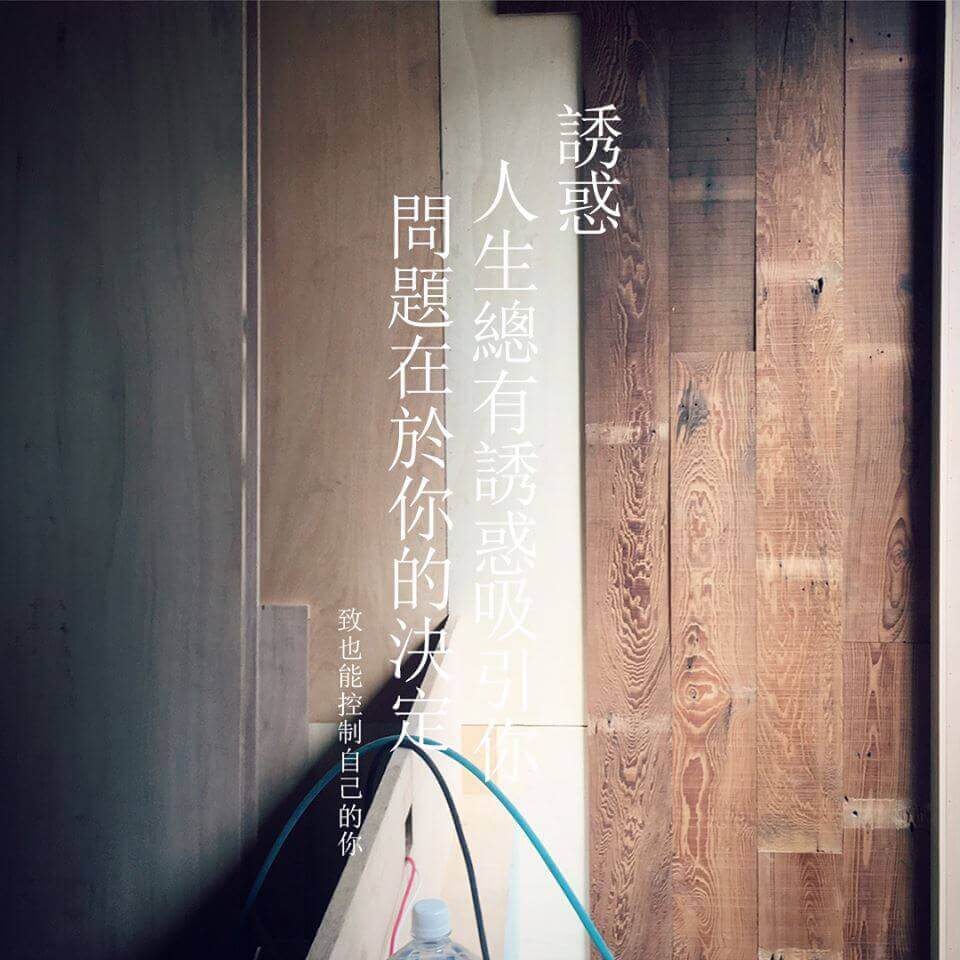 誘惑
人生總有誘惑吸引你
問題在於你的決定
致也能控制自己的你